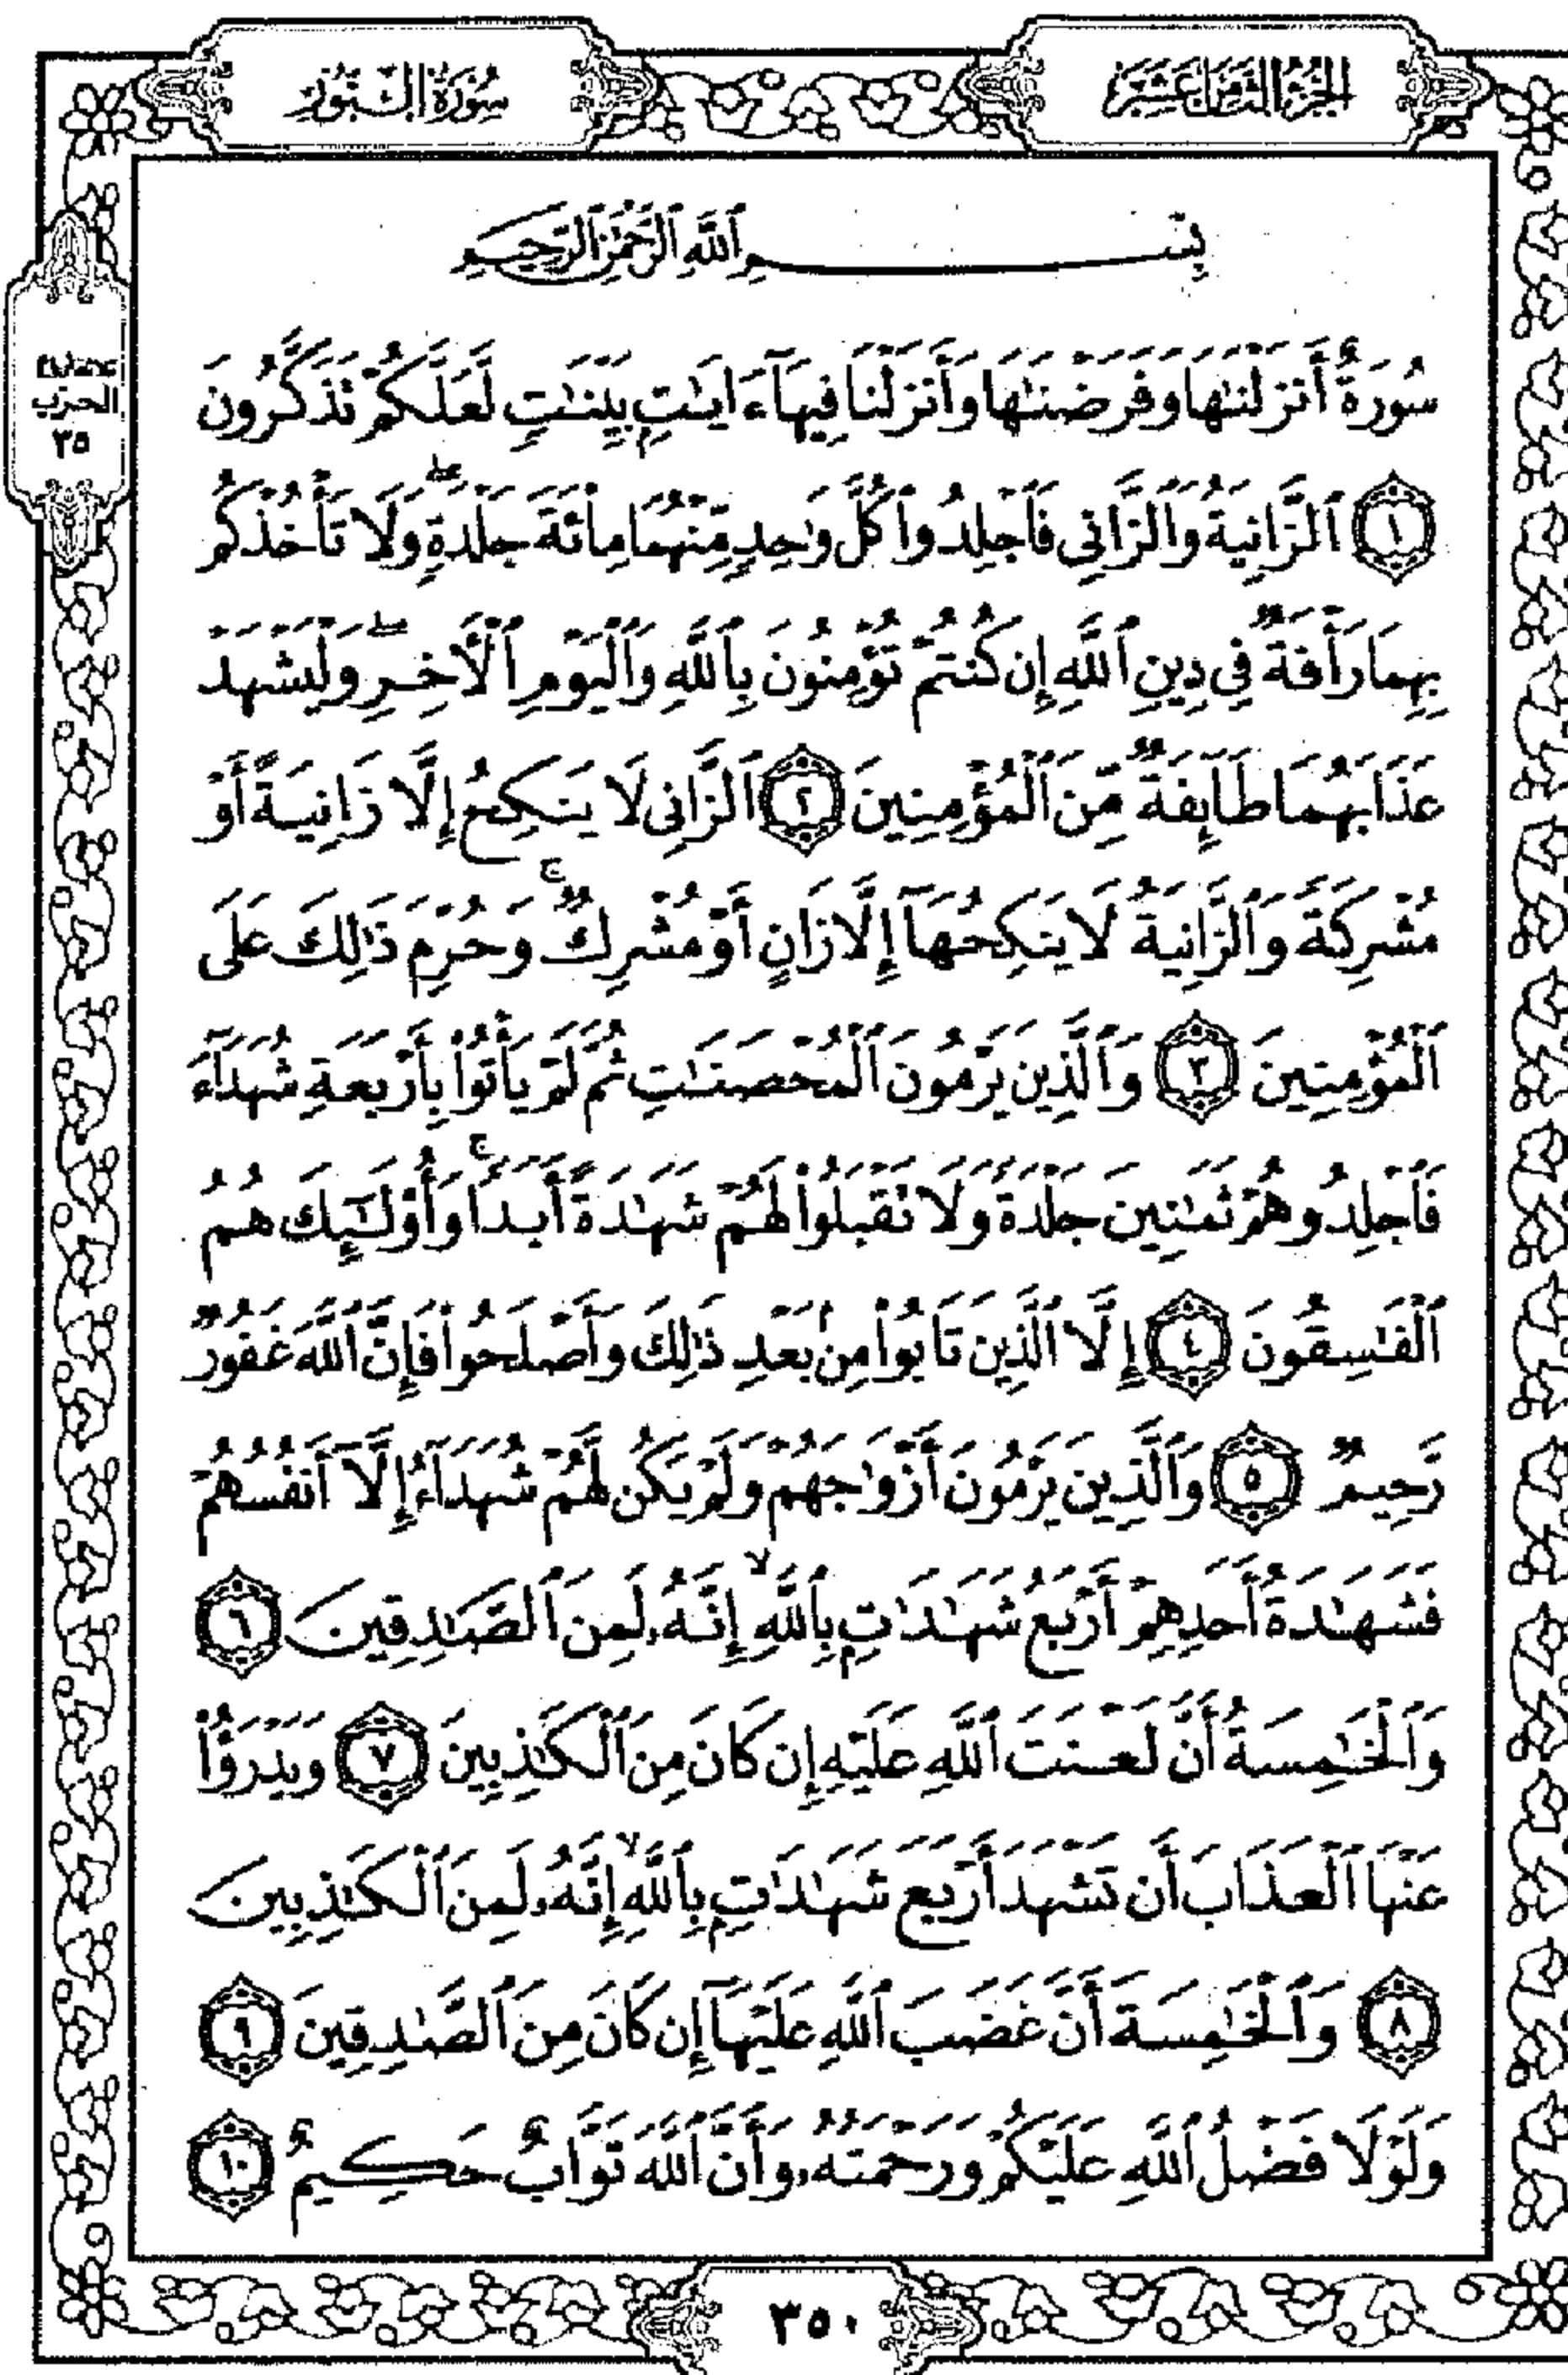 الجزء الثامن عشر
سورة النور
بِسْمِ ٱللَّهِ ٱلرَّحْمَٰنِ ٱلرَّحِيمِ
سُورَةٌ أَنزَلْنَٰهَا وَفَرَضْنَٰهَا وَأَنزَلْنَا فِيهَآ ءَايَٰتٍۭ بَيِّنَٰتٍ لَّعَلَّكُمْ تَذَكَّرُونَ
١ ٱلزَّانِيَةُ وَٱلزَّانِى فَٱجْلِدُوا۟ كُلَّ وَٰحِدٍ مِّنْهُمَا مِا۟ئَةَ جَلْدَةٍ ۖ وَلَا تَأْخُذْكُم
بِهِمَا رَأْفَةٌ فِى دِينِ ٱللَّهِ إِن كُنتُمْ تُؤْمِنُونَ بِٱللَّهِ وَٱلْيَوْمِ ٱلْءَاخِرِ ۖ وَلْيَشْهَدْ
عَذَابَهُمَا طَآئِفَةٌ مِّنَ ٱلْمُؤْمِنِينَ ٢ ٱلزَّانِى لَا يَنكِحُ إِلَّا زَانِيَةً أَوْ
مُشْرِكَةً وَٱلزَّانِيَةُ لَا يَنكِحُهَآ إِلَّا زَانٍ أَوْ مُشْرِكٌ ۚ وَحُرِّمَ ذَٰلِكَ عَلَى
ٱلْمُؤْمِنِينَ ٣ وَٱلَّذِينَ يَرْمُونَ ٱلْمُحْصَنَٰتِ ثُمَّ لَمْ يَأْتُوا۟ بِأَرْبَعَةِ شُهَدَآءَ
فَٱجْلِدُوهُمْ ثَمَٰنِينَ جَلْدَةً وَلَا تَقْبَلُوا۟ لَهُمْ شَهَٰدَةً أَبَدًا ۚ وَأُو۟لَٰٓئِكَ هُمُ
ٱلْفَٰسِقُونَ ٤ إِلَّا ٱلَّذِينَ تَابُوا۟ مِنۢ بَعْدِ ذَٰلِكَ وَأَصْلَحُوا۟ فَإِنَّ ٱللَّهَ غَفُورٌ
رَّحِيمٌ ٥ وَٱلَّذِينَ يَرْمُونَ أَزْوَٰجَهُمْ وَلَمْ يَكُن لَّهُمْ شُهَدَآءُ إِلَّآ أَنفُسُهُمْ
فَشَهَٰدَةُ أَحَدِهِمْ أَرْبَعُ شَهَٰدَٰتٍۭ بِٱللَّهِ ۙ إِنَّهُۥ لَمِنَ ٱلصَّٰدِقِينَ ٦
وَٱلْخَٰمِسَةُ أَنَّ لَعْنَتَ ٱللَّهِ عَلَيْهِ إِن كَانَ مِنَ ٱلْكَٰذِبِينَ ٧ وَيَدْرَؤُا۟
عَنْهَا ٱلْعَذَابَ أَن تَشْهَدَ أَرْبَعَ شَهَٰدَٰتٍۭ بِٱللَّهِ ۙ إِنَّهُۥ لَمِنَ ٱلْكَٰذِبِينَ
٨ وَٱلْخَٰمِسَةَ أَنَّ غَضَبَ ٱللَّهِ عَلَيْهَآ إِن كَانَ مِنَ ٱلصَّٰدِقِينَ ٩
وَلَوْلَا فَضْلُ ٱللَّهِ عَلَيْكُمْ وَرَحْمَتُهُۥ وَأَنَّ ٱللَّهَ تَوَّابٌ حَكِيمٌ ١٠
الحزب
٣٥
٣٥٠